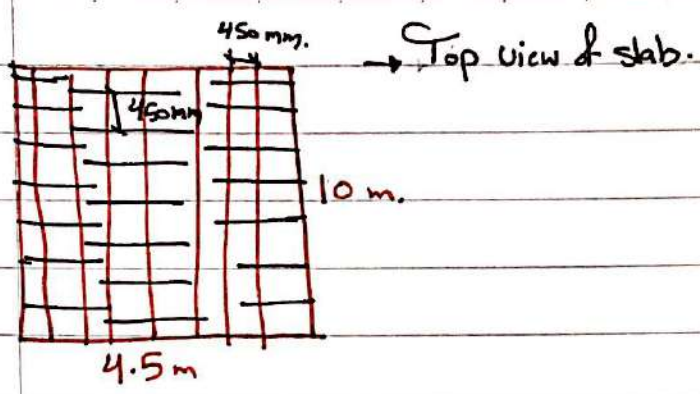 450mm.
→ Top view of slab.
450mm
10 m.
4.5m